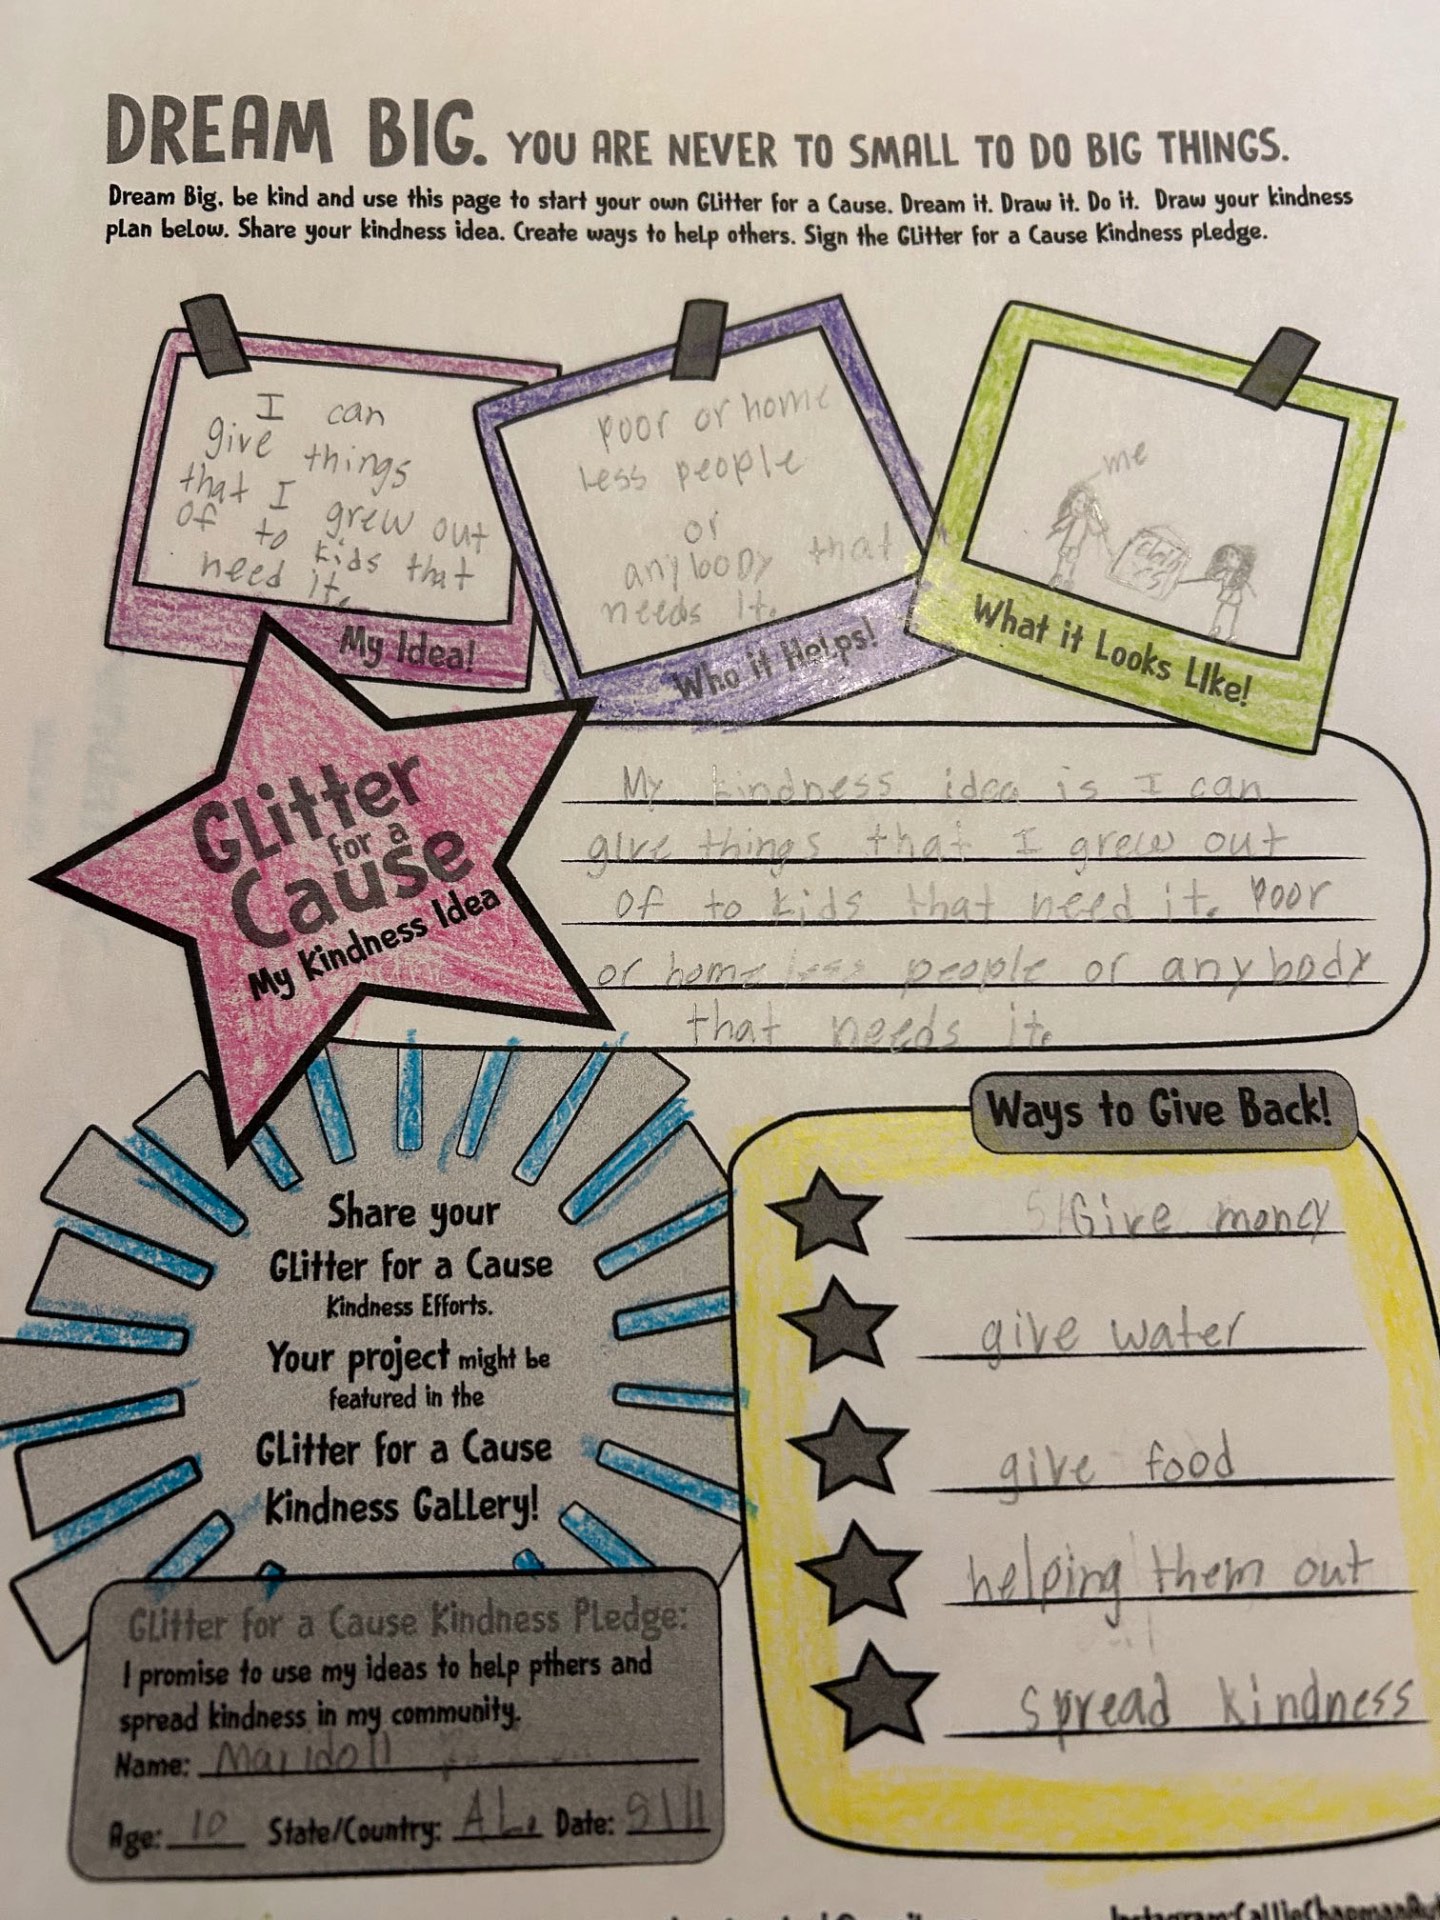 DREAM BIG. YOU ARE NEVER TO SMALL TO DO BIG THINGS.
Dream Big, be kind and use this page to start your own Glitter for a Cause. Dream it. Draw it. Do it. Draw your kindness
plan below. Share your kindness idea. Create ways to help others. Sign the Glitter for a Cause Kindness pledge.
I can
give things
that I grew out
of to kids that
need it.
My Idea!
poor or home
less people
or
anybody that
needs it.
Who it Helps!
me
What it Looks LIke!
Glitter
for a
Cause
My Kindness Idea
My kindness idea is I can
give things that I grew out
of to kids that need it. Poor
or homeless people or anybody
that needs it.
Share your
Glitter for a Cause
Kindness Efforts.
Your project might be
featured in the
Glitter for a Cause
Kindness Gallery!
Ways to Give Back!
Give money
give water
give food
helping them out
spread kindness
Glitter for a Cause Kindness Pledge:
I promise to use my ideas to help pthers and
spread kindness in my community.
Name: Maridoll
Age: 10 State/Country: AL. Date: 5/11